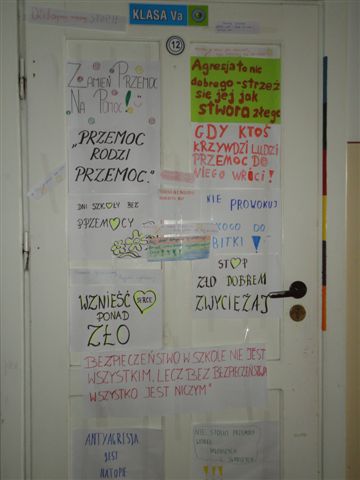 STOP!!
KLASA Va
12
ZAMIEŃ PRZEMOC
NA POMOC!
Agresja to nic
dobrego - strzeż
się jej jak
stwora złego
„PRZEMOC
RODZI
PRZEMOC."
GDY KTOŚ
KRZYWDZI LUDZI
PRZEMOC DO
NIEGO WRÓCI!
DNI SZKOŁY BEZ
PRZEMOCY
NIE PROWOKUJ
DO
BITKI!
WZNIEŚĆ SERCE
PONAD
ZŁO
STOP
ZŁO DOBREM
ZWYCIĘŻAJ
BEZPIECZEŃSTWO W SZKOLE NIE JEST
WSZYSTKIM, LECZ BEZ BEZPIECZEŃSTWA
WSZYSTKO JEST NICZYM"
ANTYAGRESJA
JEST
NA TOPIE
NIE STOSUJ PRZEMOCY
WOBEC
MŁODSZYCH
!!!